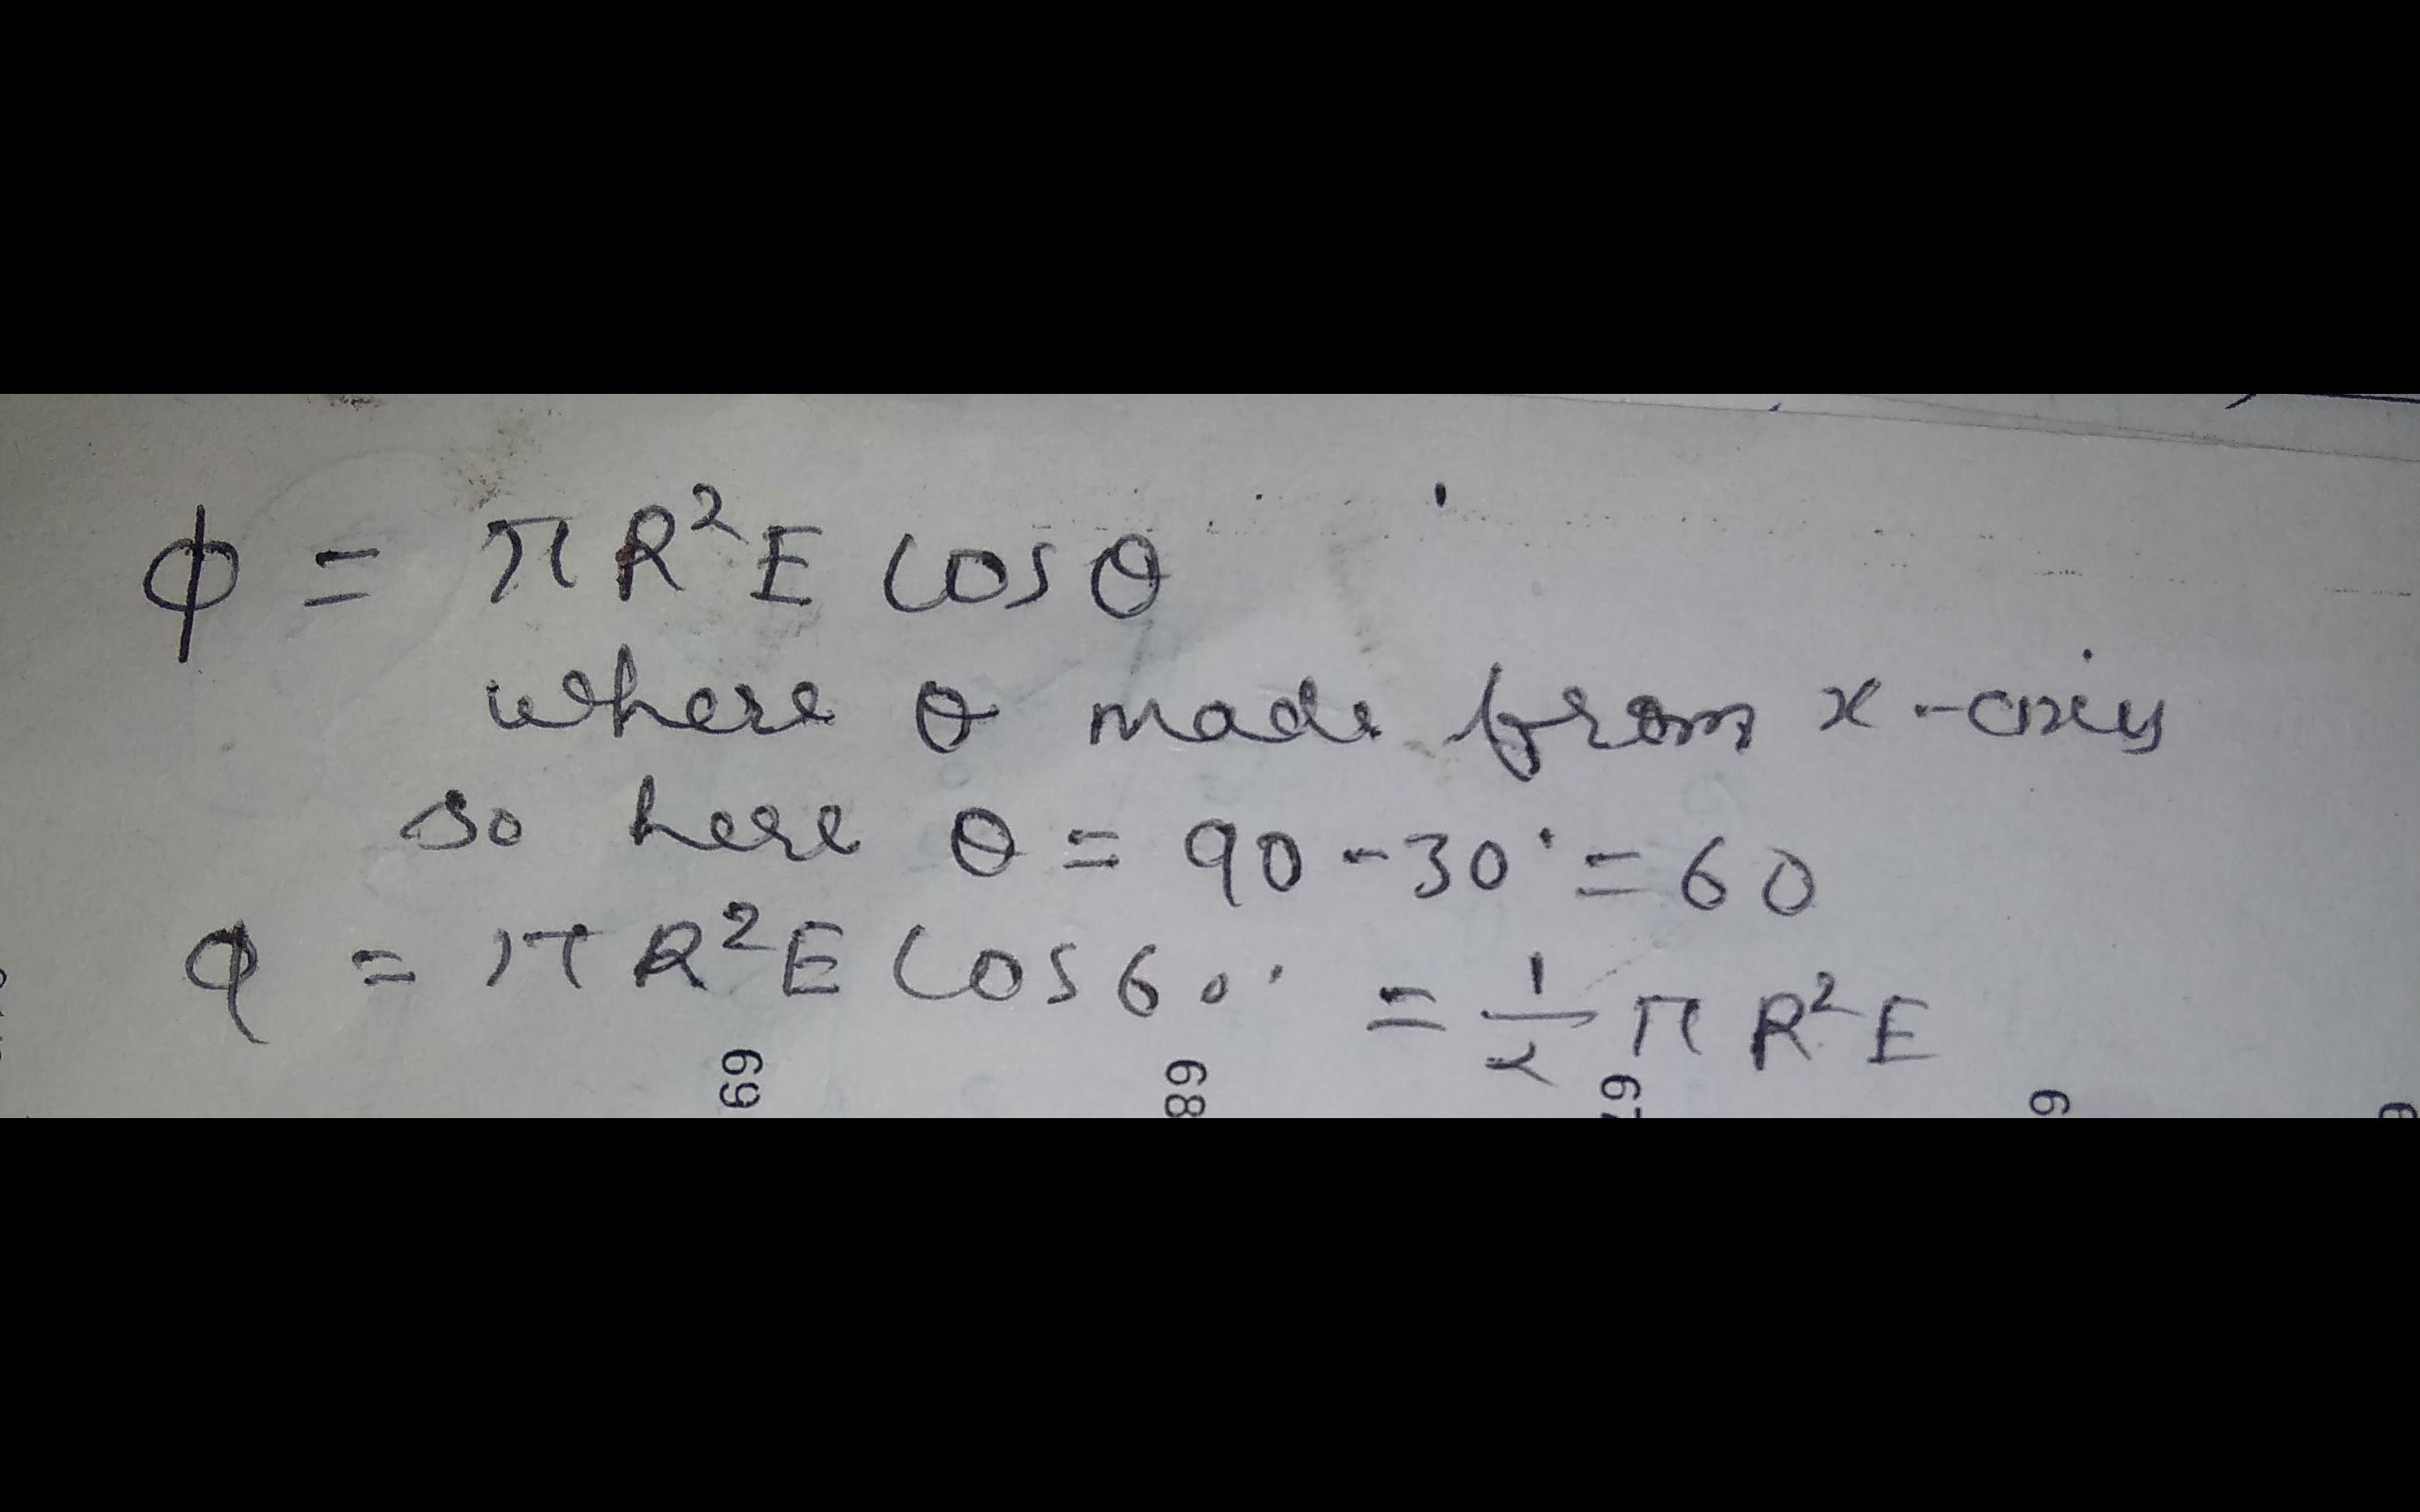 ϕ = π R² E cos θ
where θ made from x-axis
so here θ = 90 - 30° = 60
ϕ = π R² E cos 60° = 1/2 π R² E
69 68 67 6